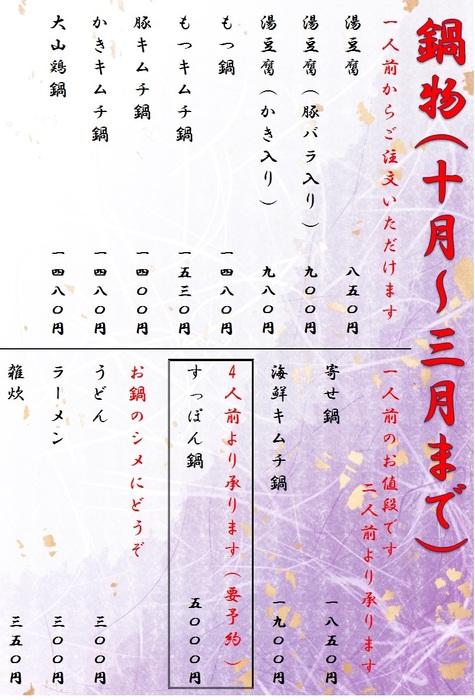 鍋物(十月〜三月まで)
一人前からご注文いただけます
湯豆腐 八五〇円
湯豆腐(豚バラ入り) 九〇〇円
湯豆腐(かき入り) 九八〇円
もつ鍋 一四八〇円
もつキムチ鍋 一五三〇円
豚キムチ鍋 一四〇〇円
かきキムチ鍋 一四八〇円
大山鶏鍋 一四八〇円
一人前のお値段です
二人前より承ります
寄せ鍋 一八五〇円
海鮮キムチ鍋 一九〇〇円
4人前より承ります(要予約)
すっぽん鍋 五〇〇〇円
お鍋のシメにどうぞ
うどん 三〇〇円
ラーメン 三〇〇円
雑炊 三五〇円